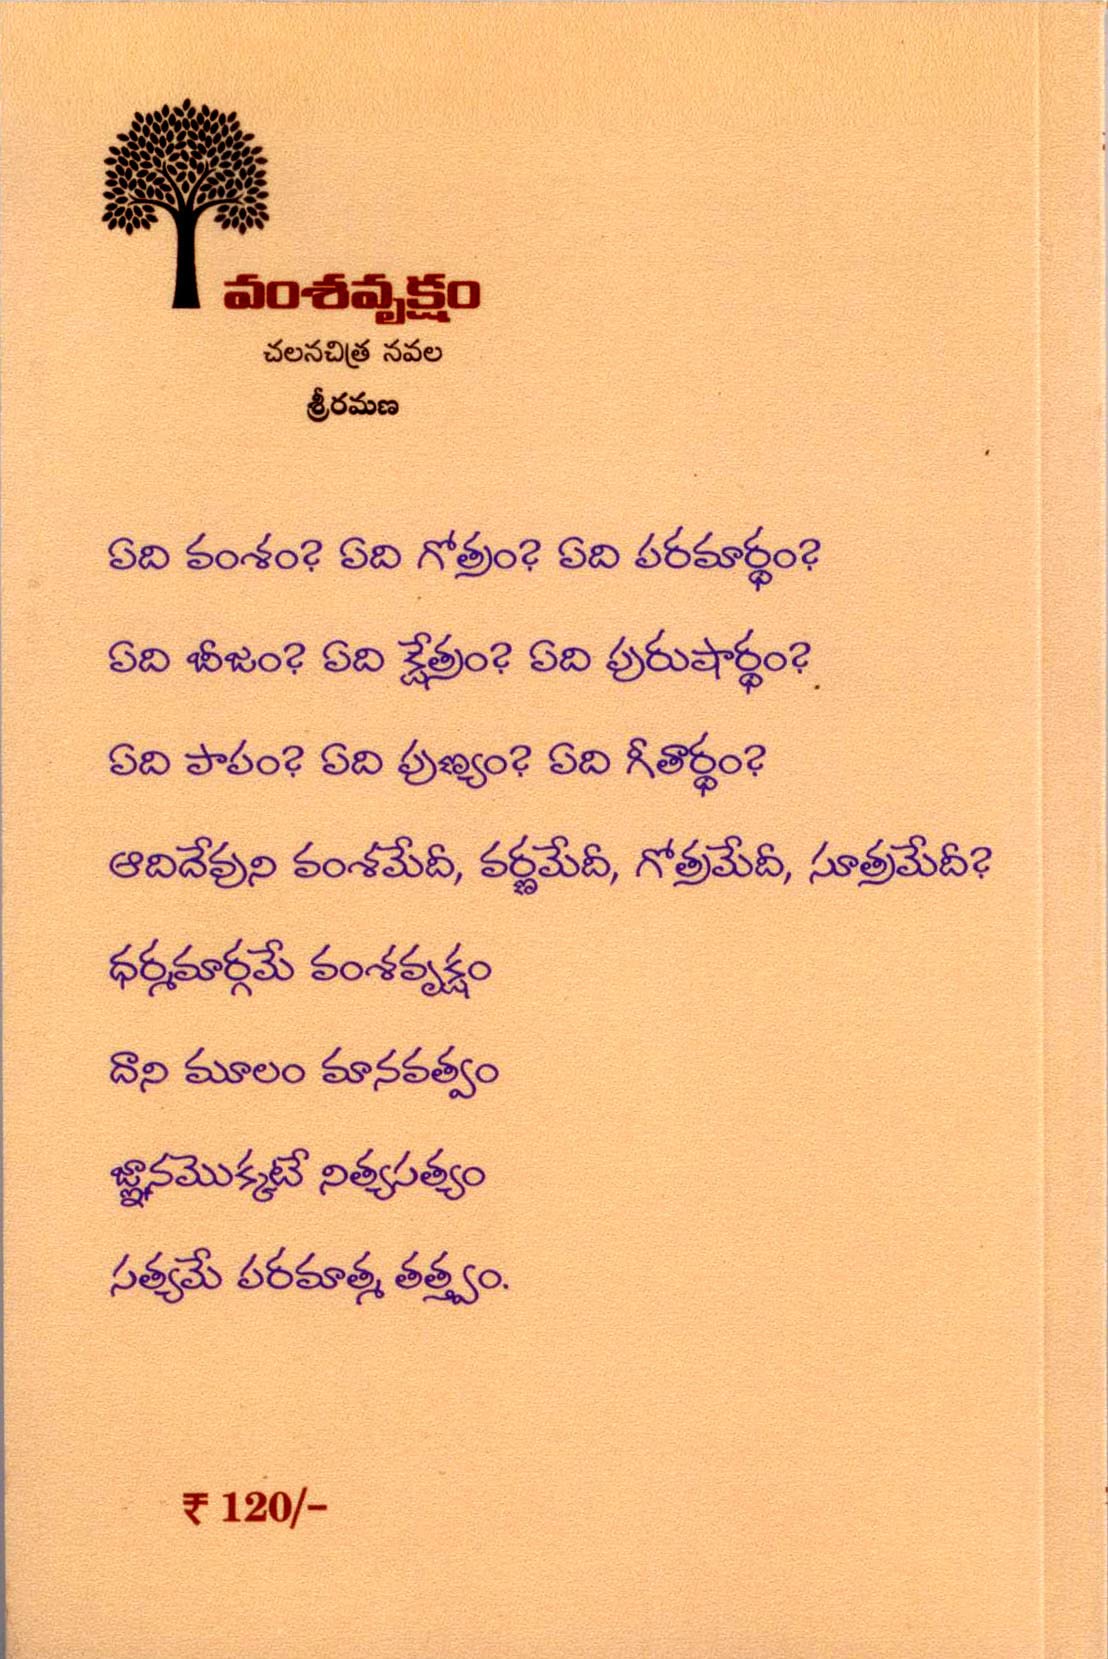 వంశవృక్షం
చలనచిత్ర నవల
శ్రీరమణ
ఏది వంశం? ఏది గోత్రం? ఏది పరమార్థం?
ఏది బీజం? ఏది క్షేత్రం? ఏది పురుషార్థం?
ఏది పాపం? ఏది పుణ్యం? ఏది గీతార్థం?
ఆదిదేవుని వంశమేదీ, వర్ణమేదీ, గోత్రమేదీ, సూత్రమేదీ?
ధర్మమార్గమే వంశవృక్షం
దాని మూలం మానవత్వం
జ్ఞానమొక్కటే నిత్యసత్యం
సత్యమే పరమాత్మ తత్త్వం.
₹ 120/-